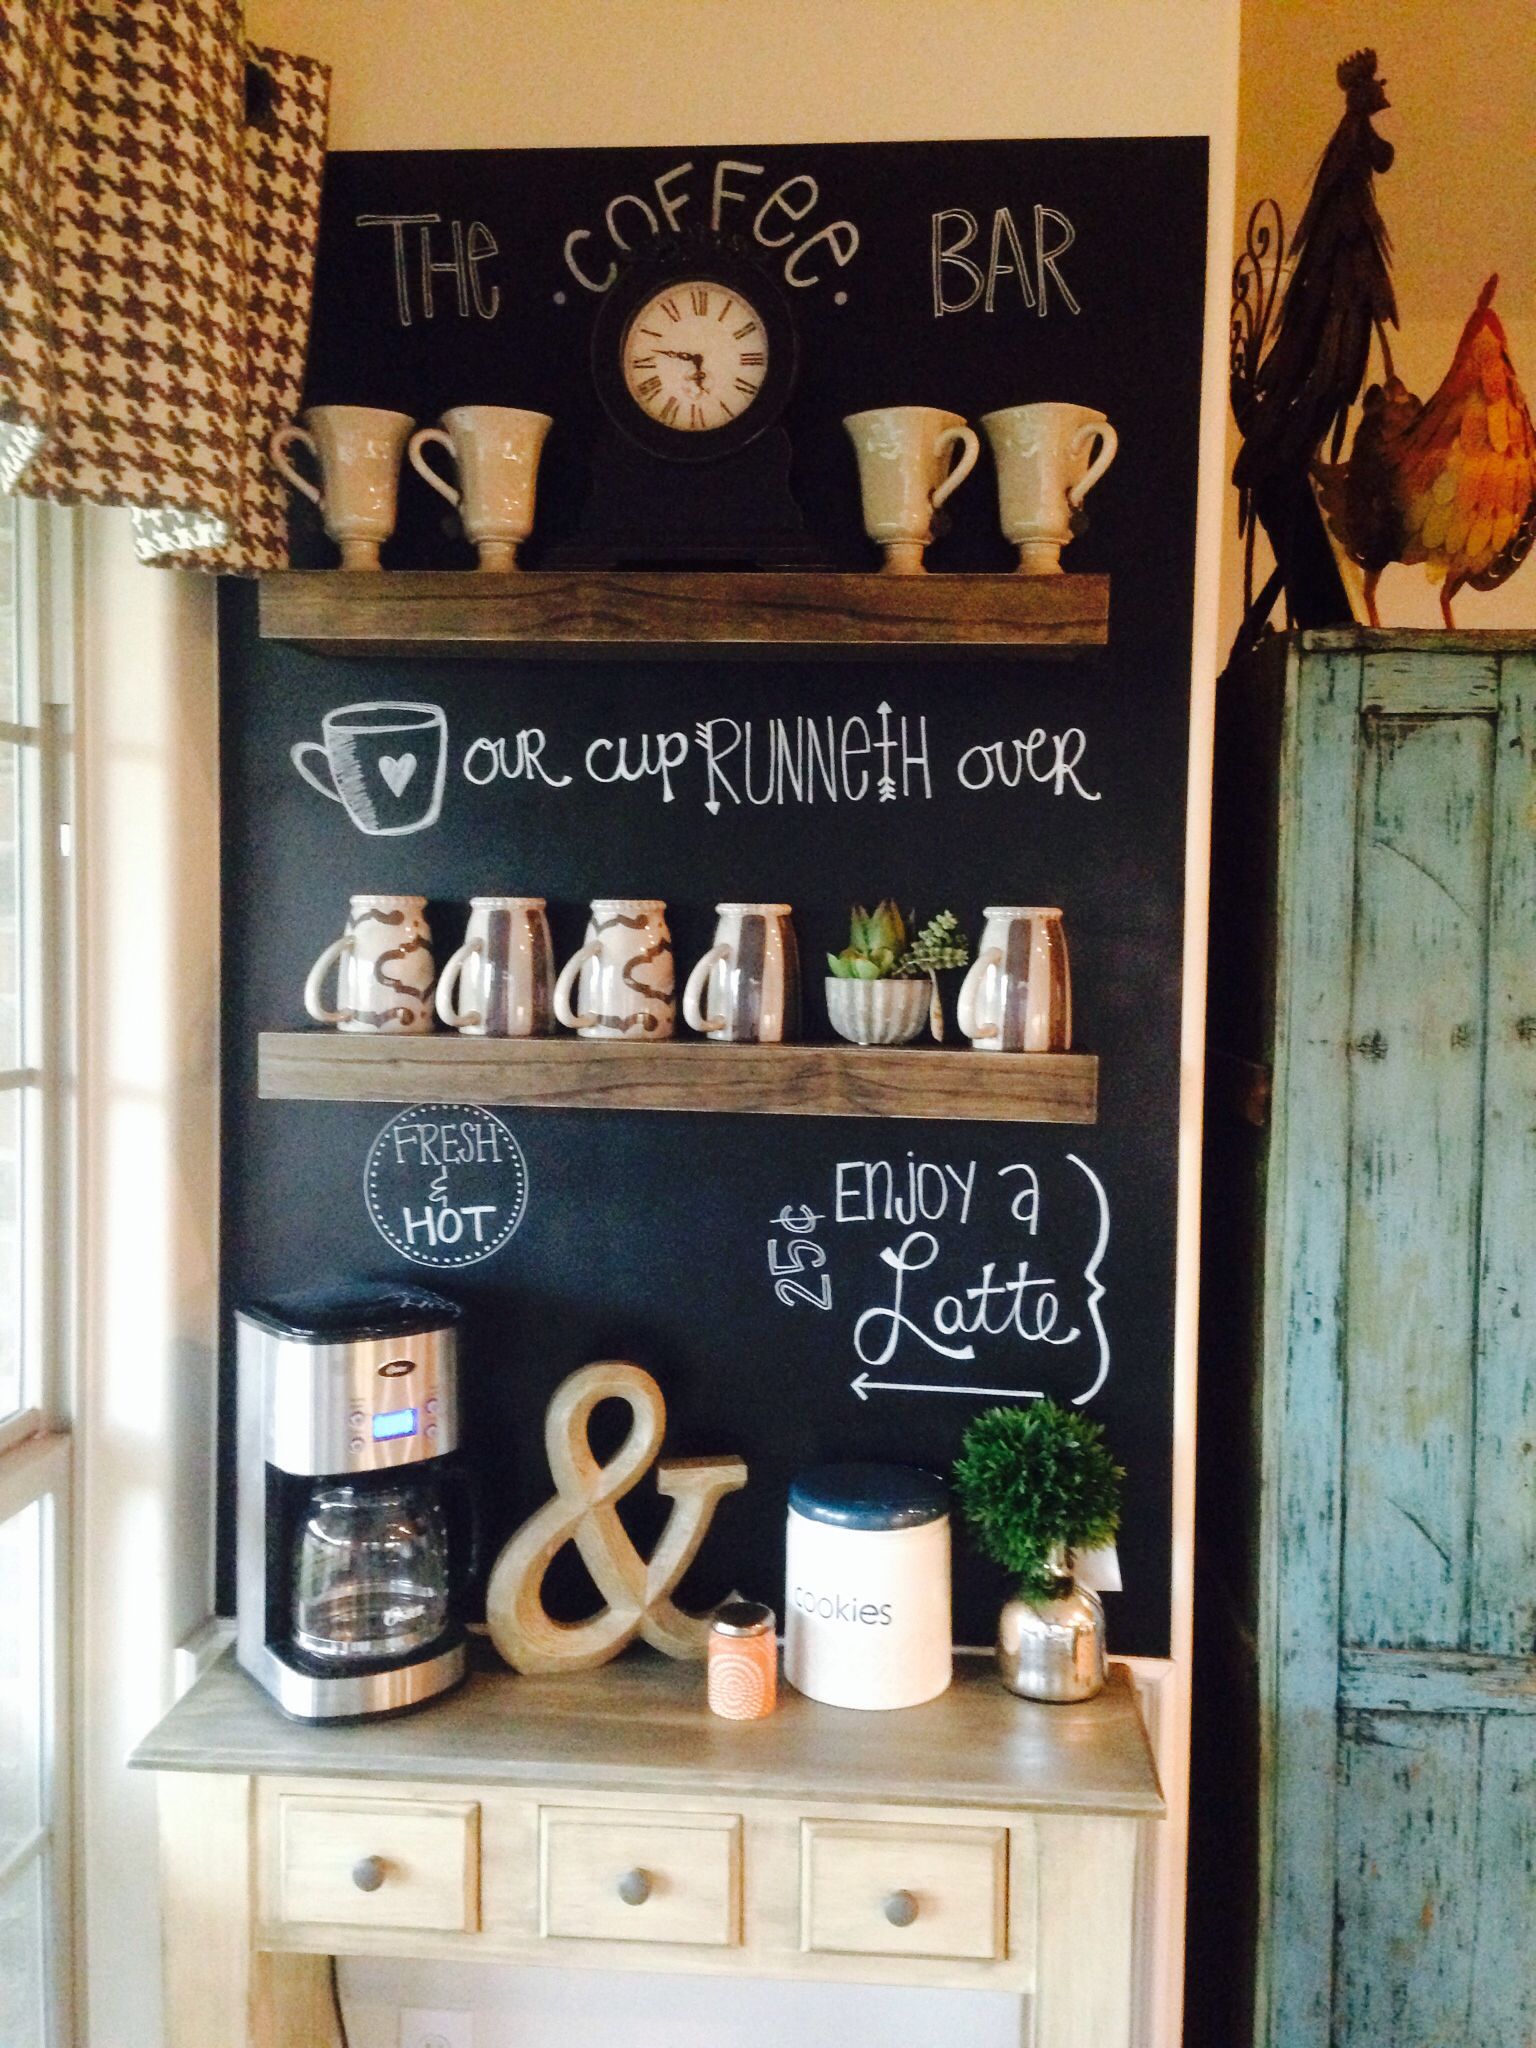 THE .COFFEE. BAR
OUR CUP RUNNETH OVER
FRESH
&
HOT
25¢
ENJOY A
Latte
&
cookies